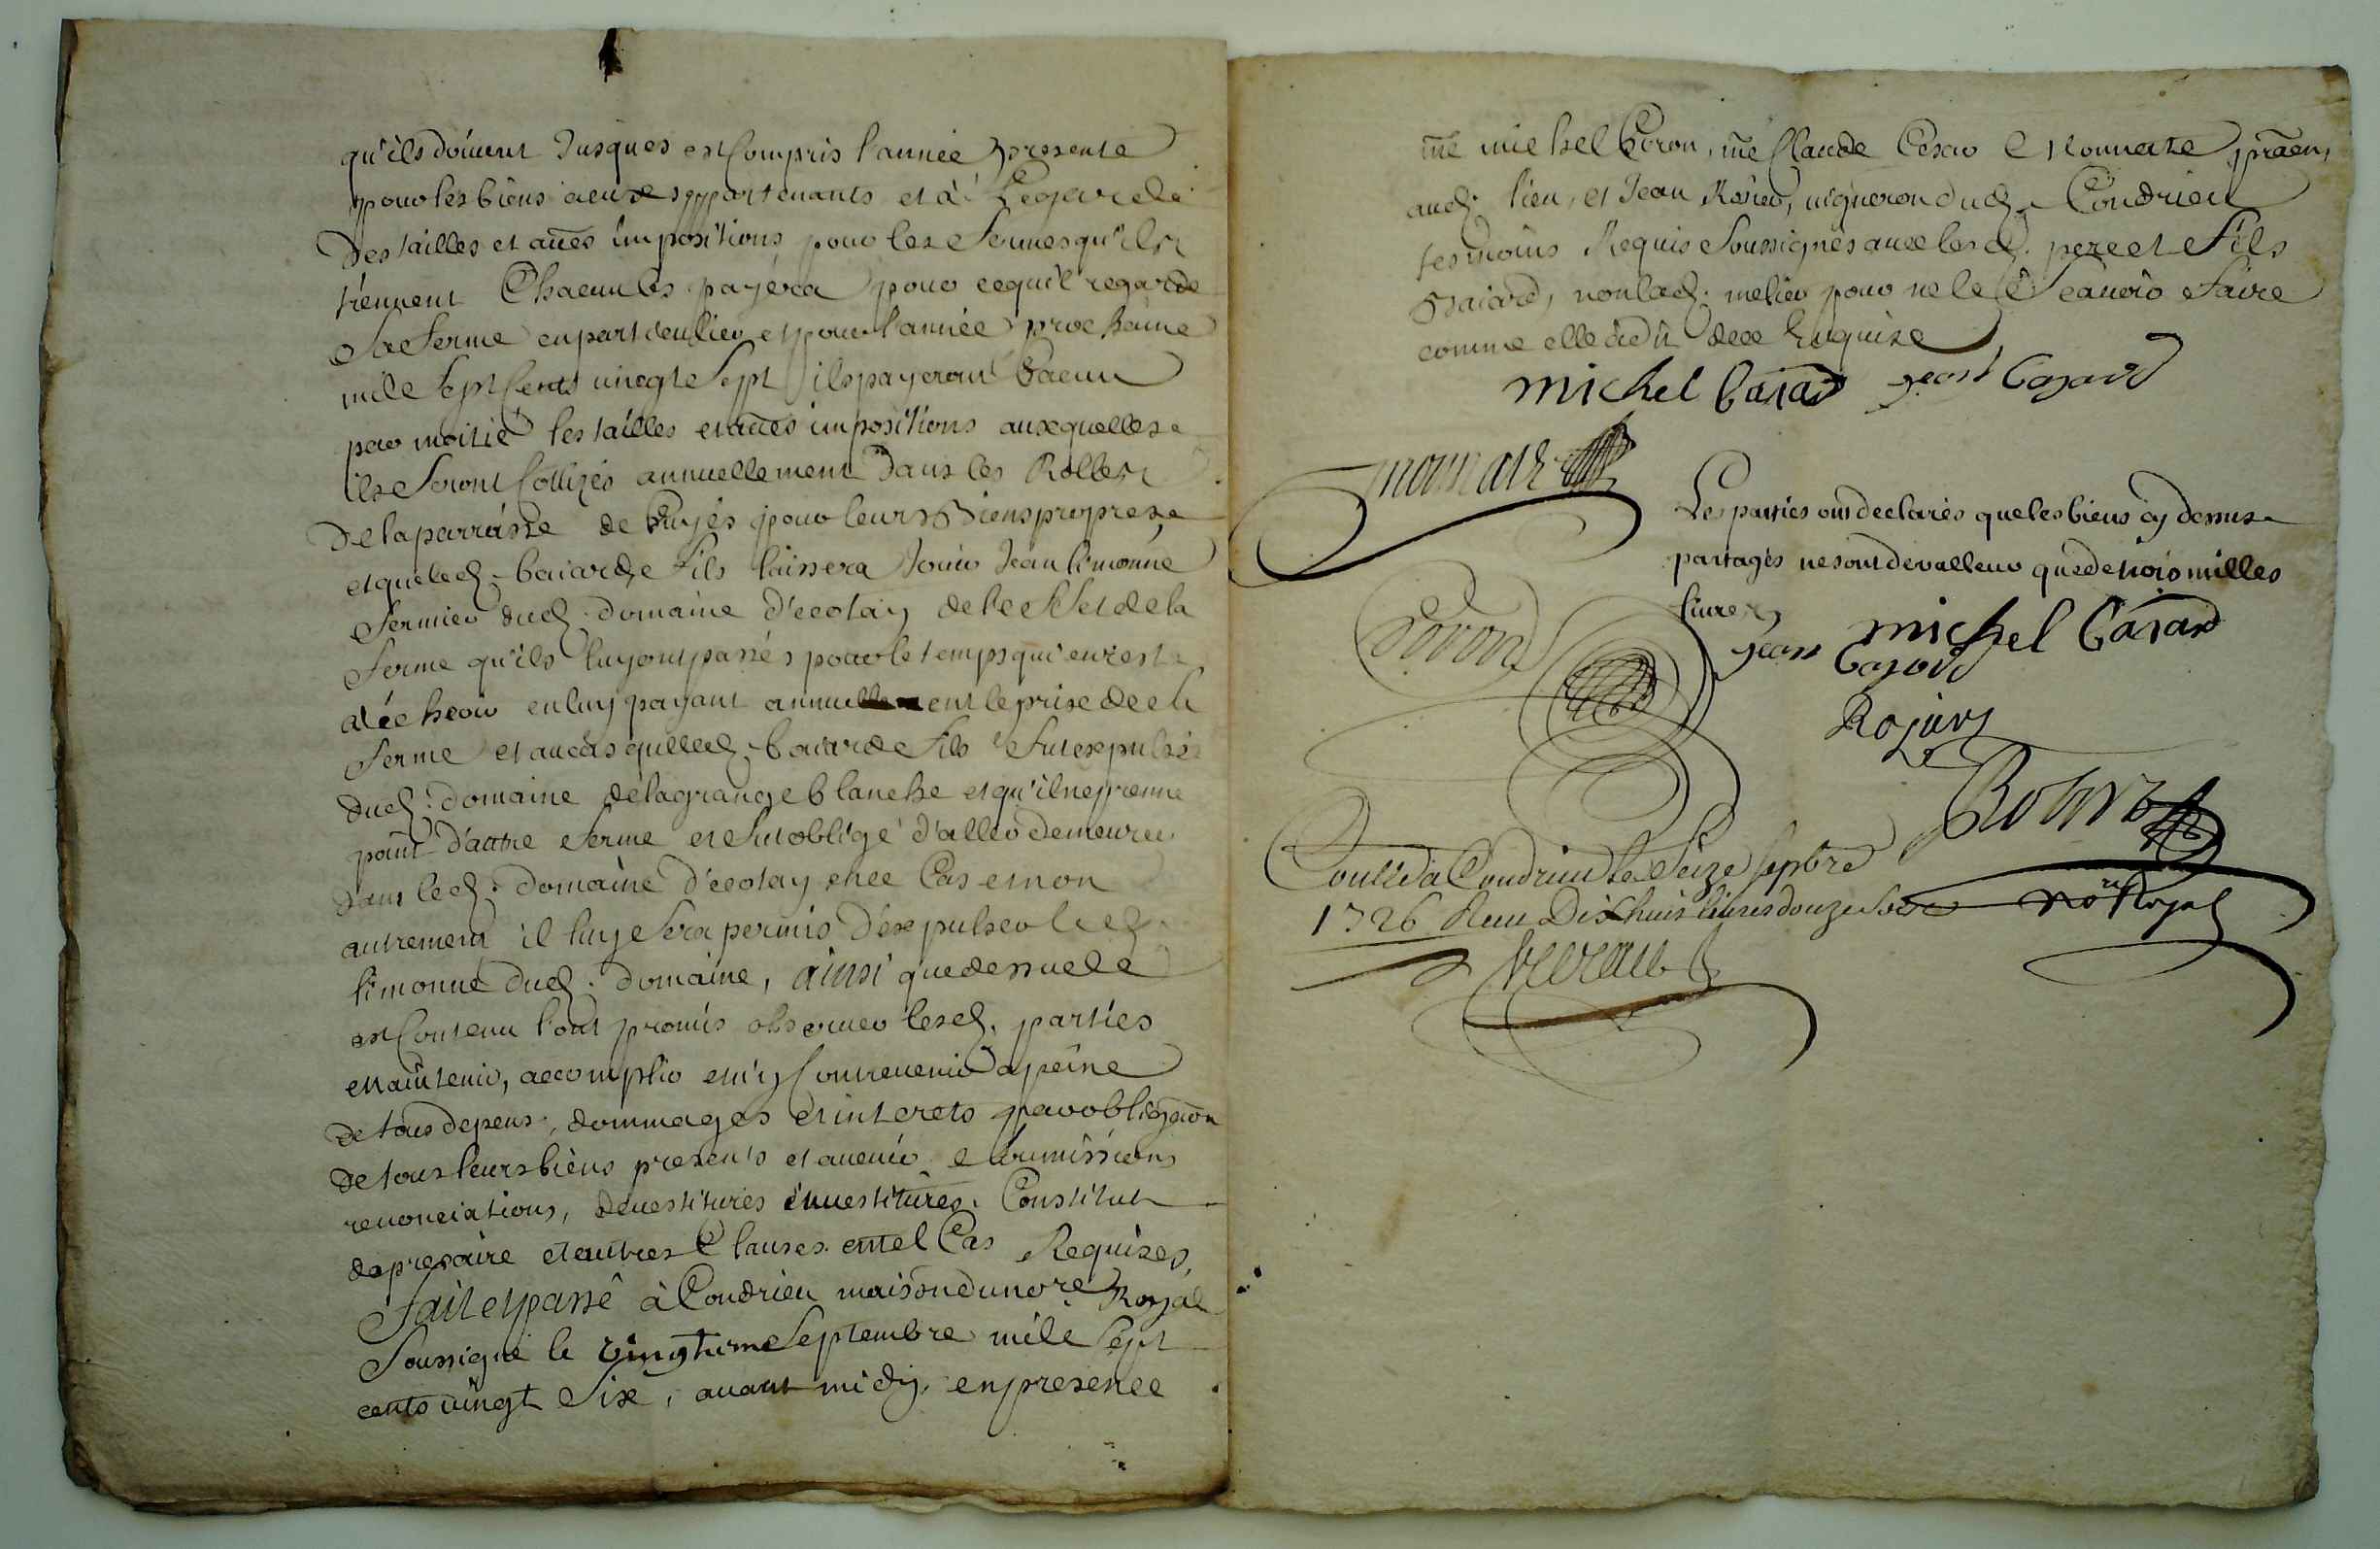 qu'ils doivent Jusques et Compris l'année presente
pour les biens a eux appartenants et à L'egard
Des tailles et aûes impositions pour les fermes qu'ils
tiennent Chacun les payera pour ce qui regarde
Sa ferme en particulier et pour l'année prochaine
mille Sept Cents vingt Sept ils payeront Chacun
par moitié les tailles et aûes impositions auxquelles
ils Seront Cottizés annuellement Dans les Rolles
De la parroisse de pour leurs Biens propres
et que led. baiard fils laissera Jouir Jean limonne
fermier dud. domaine d'ecotay de l'effet de la
ferme qu'ils luy ont passés pour le temps qui en reste
a écheoir en luy payant annuellement le prix de
ferme et au cas que led. baiard fils fut expulsé
dud. domaine de la grange blanche et qu'il ne prenne
point d'autre ferme et fut obligé d'aller demeurer
dans led. domaine d'ecotay Cas et non
autrement il luy Sera permis d'expulser led.
limonne dud. domaine, ainsi que dessus
est Contenu l'ont promis observer lesd. parties
maintenir, accomplir et n'y Contrevenir a peine
de tous depens, dommages et interets par obligaõn
de tous leurs biens presents et avenir soumissions
renonciations, devestitures investitures, Constitut
de precaire et autres Clauses en tel Cas Requizes,
fait et passé à Condrieu maison du nore Royal
Soussigné le vingtieme Septembre mille Sept
cents vingt Six, avant midy, en presence
me michel Coron, me Claude Cesar praen,
aud. lieu, et Jean vigneron dud. Condrieu
temoins Requis Soussignés avec lesd. pere et fils
Baiard, non lad. melier pour ne le Scavoir faire
comme elle a dit de ce Enquize
michel baiard jean bayard

Les parties ont declarés que les biens cy dessus
partagés ne sont de valleur que de trois milles
livres
Coron
michel baiard
jean bayard
Conllé a Condrieu le Seize Septbre
1726 Receu Dix huit livres douze Sols
nore Royal